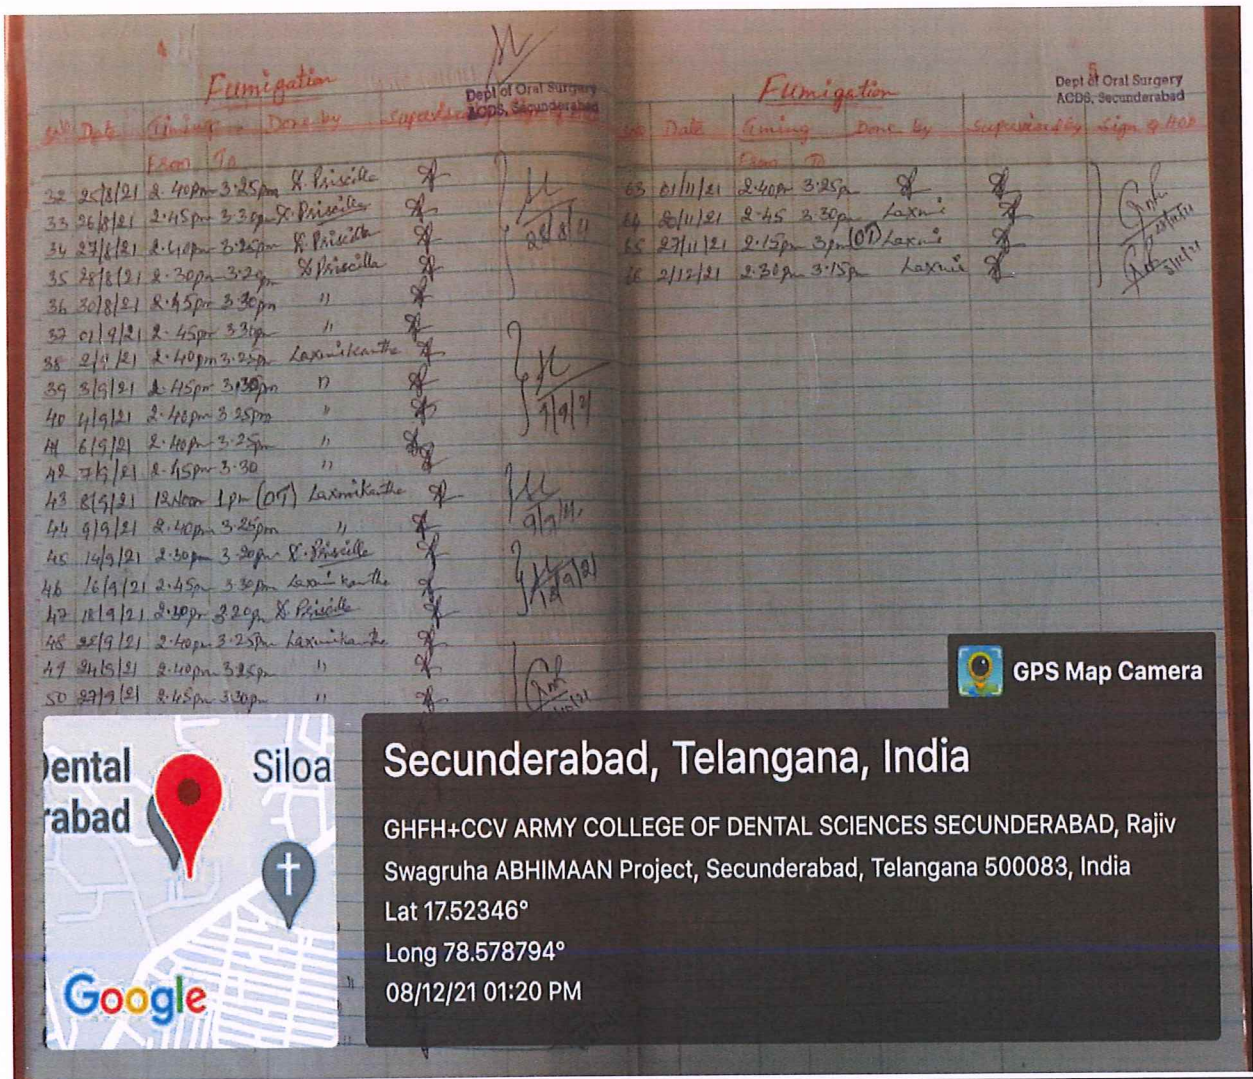 4
Fumigation
Dept of Oral Surgery
ACDS, Secunderabad
S.No Date Timing Done by Supervised by
From To
32 25/8/21 2.40pm 3.25pm S. Priscilla
33 26/8/21 2.45pm 3.30pm S. Priscilla
34 27/8/21 2.40pm 3.25pm S. Priscilla
35 28/8/21 2.30pm 3.20pm S Priscilla
28/8/21
36 30/8/21 2.45pm 3.30pm "
37 01/9/21 2.45pm 3.30pm "
38 2/9/21 2.40pm 3.25pm Laxmikantha
39 3/9/21 2.45pm 3.30pm "
40 4/9/21 2.40pm 3.25pm "
41 6/9/21 2.40pm 3.25pm "
42 7/9/21 2.45pm 3.30 "
43 8/9/21 12Noon 1pm (OT) Laxmikantha
44 9/9/21 2.40pm 3.25pm "
9/9/21
45 14/9/21 2.30pm 3.20pm S. Priscilla
46 16/9/21 2.45pm 3.30pm Laxmikantha
18/9/21
47 18/9/21 2.30pm 3.20pm S Priscilla
48 22/9/21 2.40pm 3.25pm Laxmikantha
49 24/9/21 2.40pm 3.25pm "
50 27/9/21 2.45pm 3.30pm "
5
Fumigation
Dept of Oral Surgery
ACDS, Secunderabad
S.No Date Timing Done by Supervised by Sign of HOD
From To
63 01/11/21 2.40pm 3.25pm
64 20/11/21 2.45 3.30pm Laxmi
65 27/11/21 2.15pm 3pm (OT) Laxmi
66 2/12/21 2.30pm 3.15pm Laxmi
GPS Map Camera
Dental
rabad
Siloa
Google
Secunderabad, Telangana, India
GHFH+CCV ARMY COLLEGE OF DENTAL SCIENCES SECUNDERABAD, Rajiv
Swagruha ABHIMAAN Project, Secunderabad, Telangana 500083, India
Lat 17.52346°
Long 78.578794°
08/12/21 01:20 PM